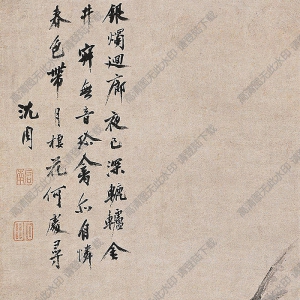 銀燭迴廊夜已深轆轤金
井寂無音珍禽亦自憐
春色帶月棲花何處尋
沈周